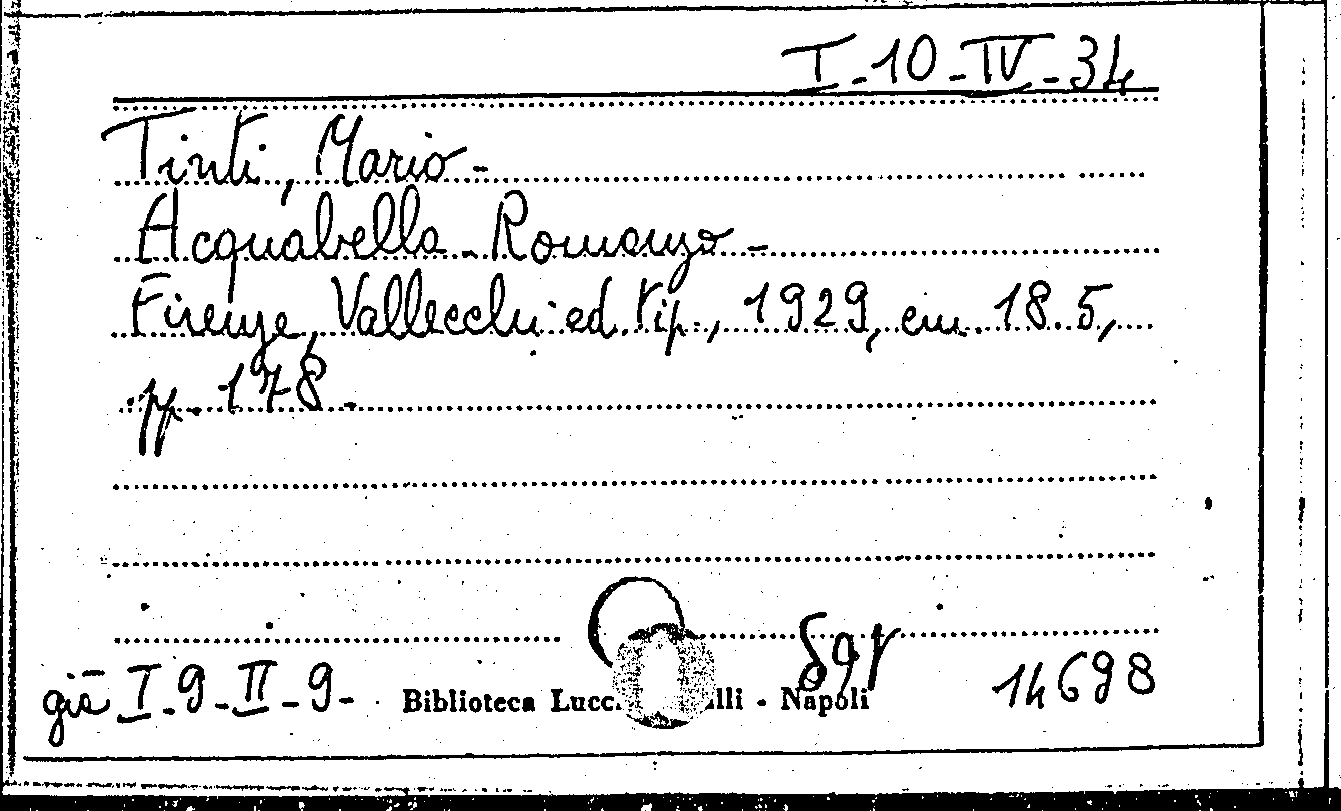 I-10-IV-34
Tinti, Mario-
Acquabella-Romanzo-
Firenze, Vallecchi ed tip., 1929, cm. 18.5,
pp. 178.
già I-9-II-9- Biblioteca Lucc lli - Napoli 14698